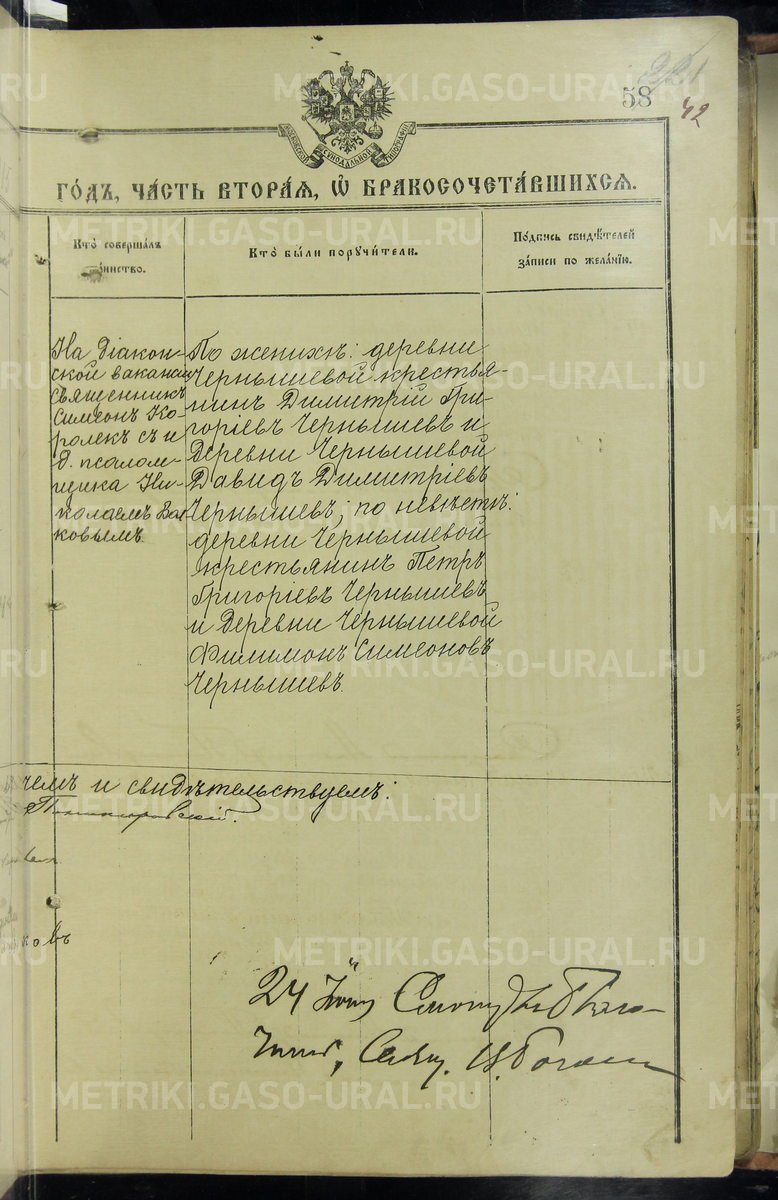 221
58
42
МОСКОВСКОЙ СѴНОДАЛЬНОЙ ТИПОГРАФІИ
ГО́ДЪ, ЧА́СТЬ ВТОРА́Я, Ѽ БРАКОСОЧЕТА́ВШИХСЯ.
Кто̀ соверша́лъ
та́инство.
Кто̀ бы́ли порꙋчи́тели.
По́дпись свидѣ́телей
за́писи по жела́нїю.
На діакон-
ской вакансіи
священникъ
Симеонъ Ко-
ролекъ съ и
д. псалом-
щика Ни-
колаемъ
ковымъ.
По женихѣ: деревни
Чернышевой крестья-
нинъ Димитрій Гри-
горіевъ Чернышевъ и
деревни Чернышевой
Давидъ Димитріевъ
Чернышевъ; по невѣстѣ:
деревни Чернышевой
крестьянинъ Петръ
Григоріевъ Чернышевъ
и деревни Чернышевой
Филимонъ Симеоновъ
Чернышевъ.
чемъ и свидѣтельствуемъ:
ковъ
24
METRIKI.GASO-URAL.RU